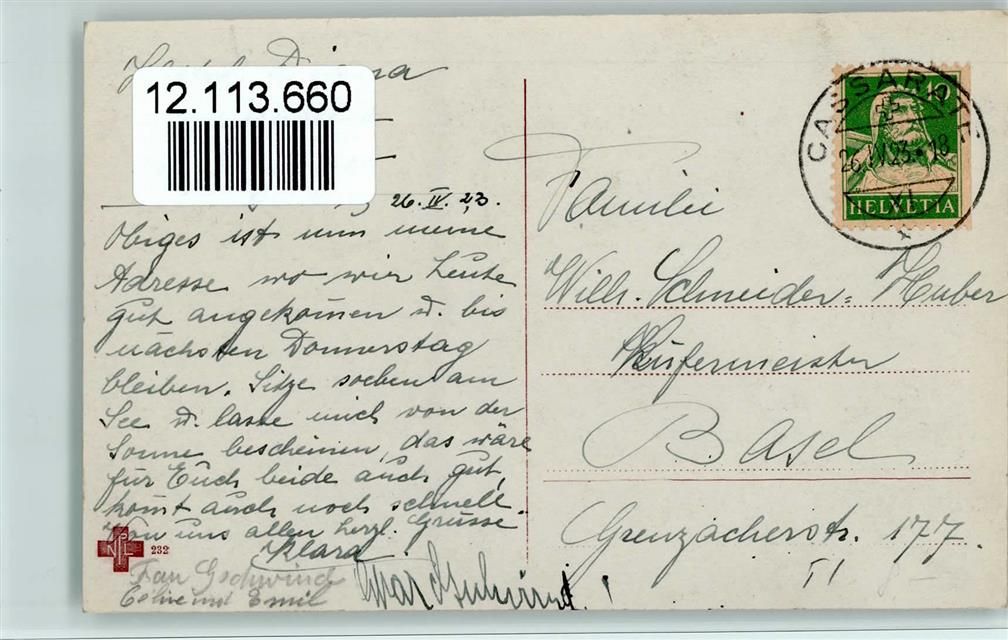 12.113.660
26. IV. 23.
Obiges ist nun meine
Adresse wo wir heute
gut angekommen u. bis
nächsten Donnerstag
bleiben. Sitze soeben am
See u. lasse mich von der
Sonne bescheinen, das wäre
für Euch beide auch gut,
komt auch noch schnell.
Von uns allen herzl. Grüsse
Klara
Frau Gschwind
und Emil
NPG
232
CASSARATE
26.IV.23.-18
10
HELVETIA
Familie
Wilh. Schneider-Huber
Küfermeister
Basel
Grenzacherstr. 177.